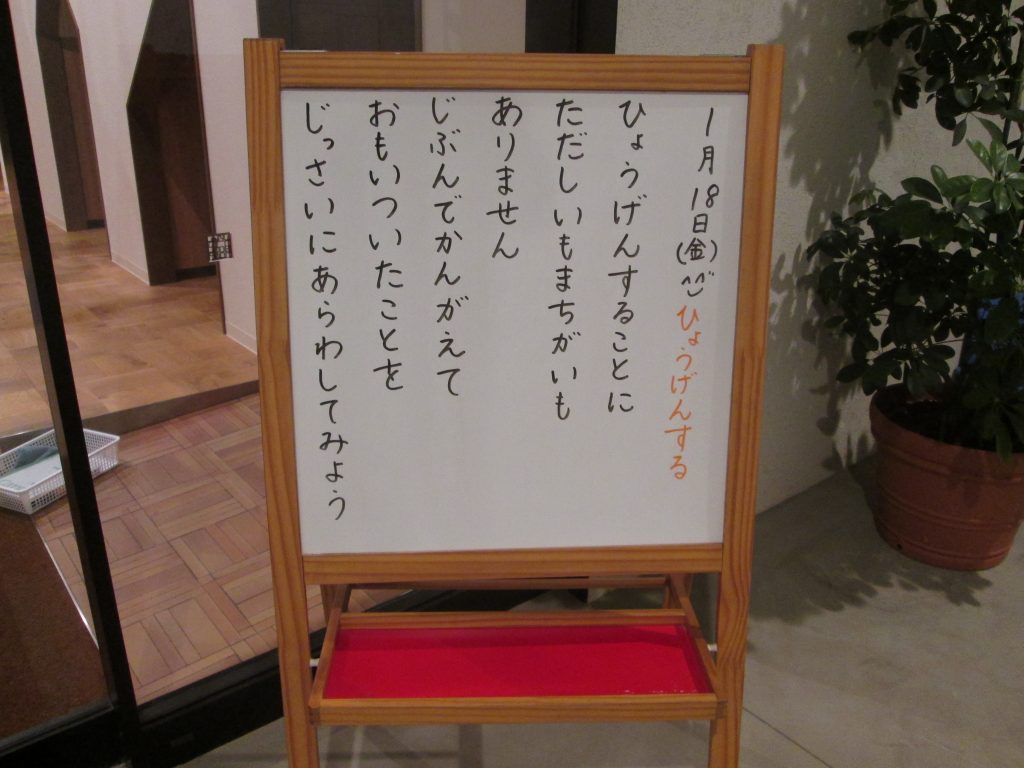 1月18日(金)^^ ひょうげんする
ひょうげんすることに
ただしいもまちがいも
ありません
じぶんでかんがえて
おもいついたことを
じっさいにあらわしてみよう